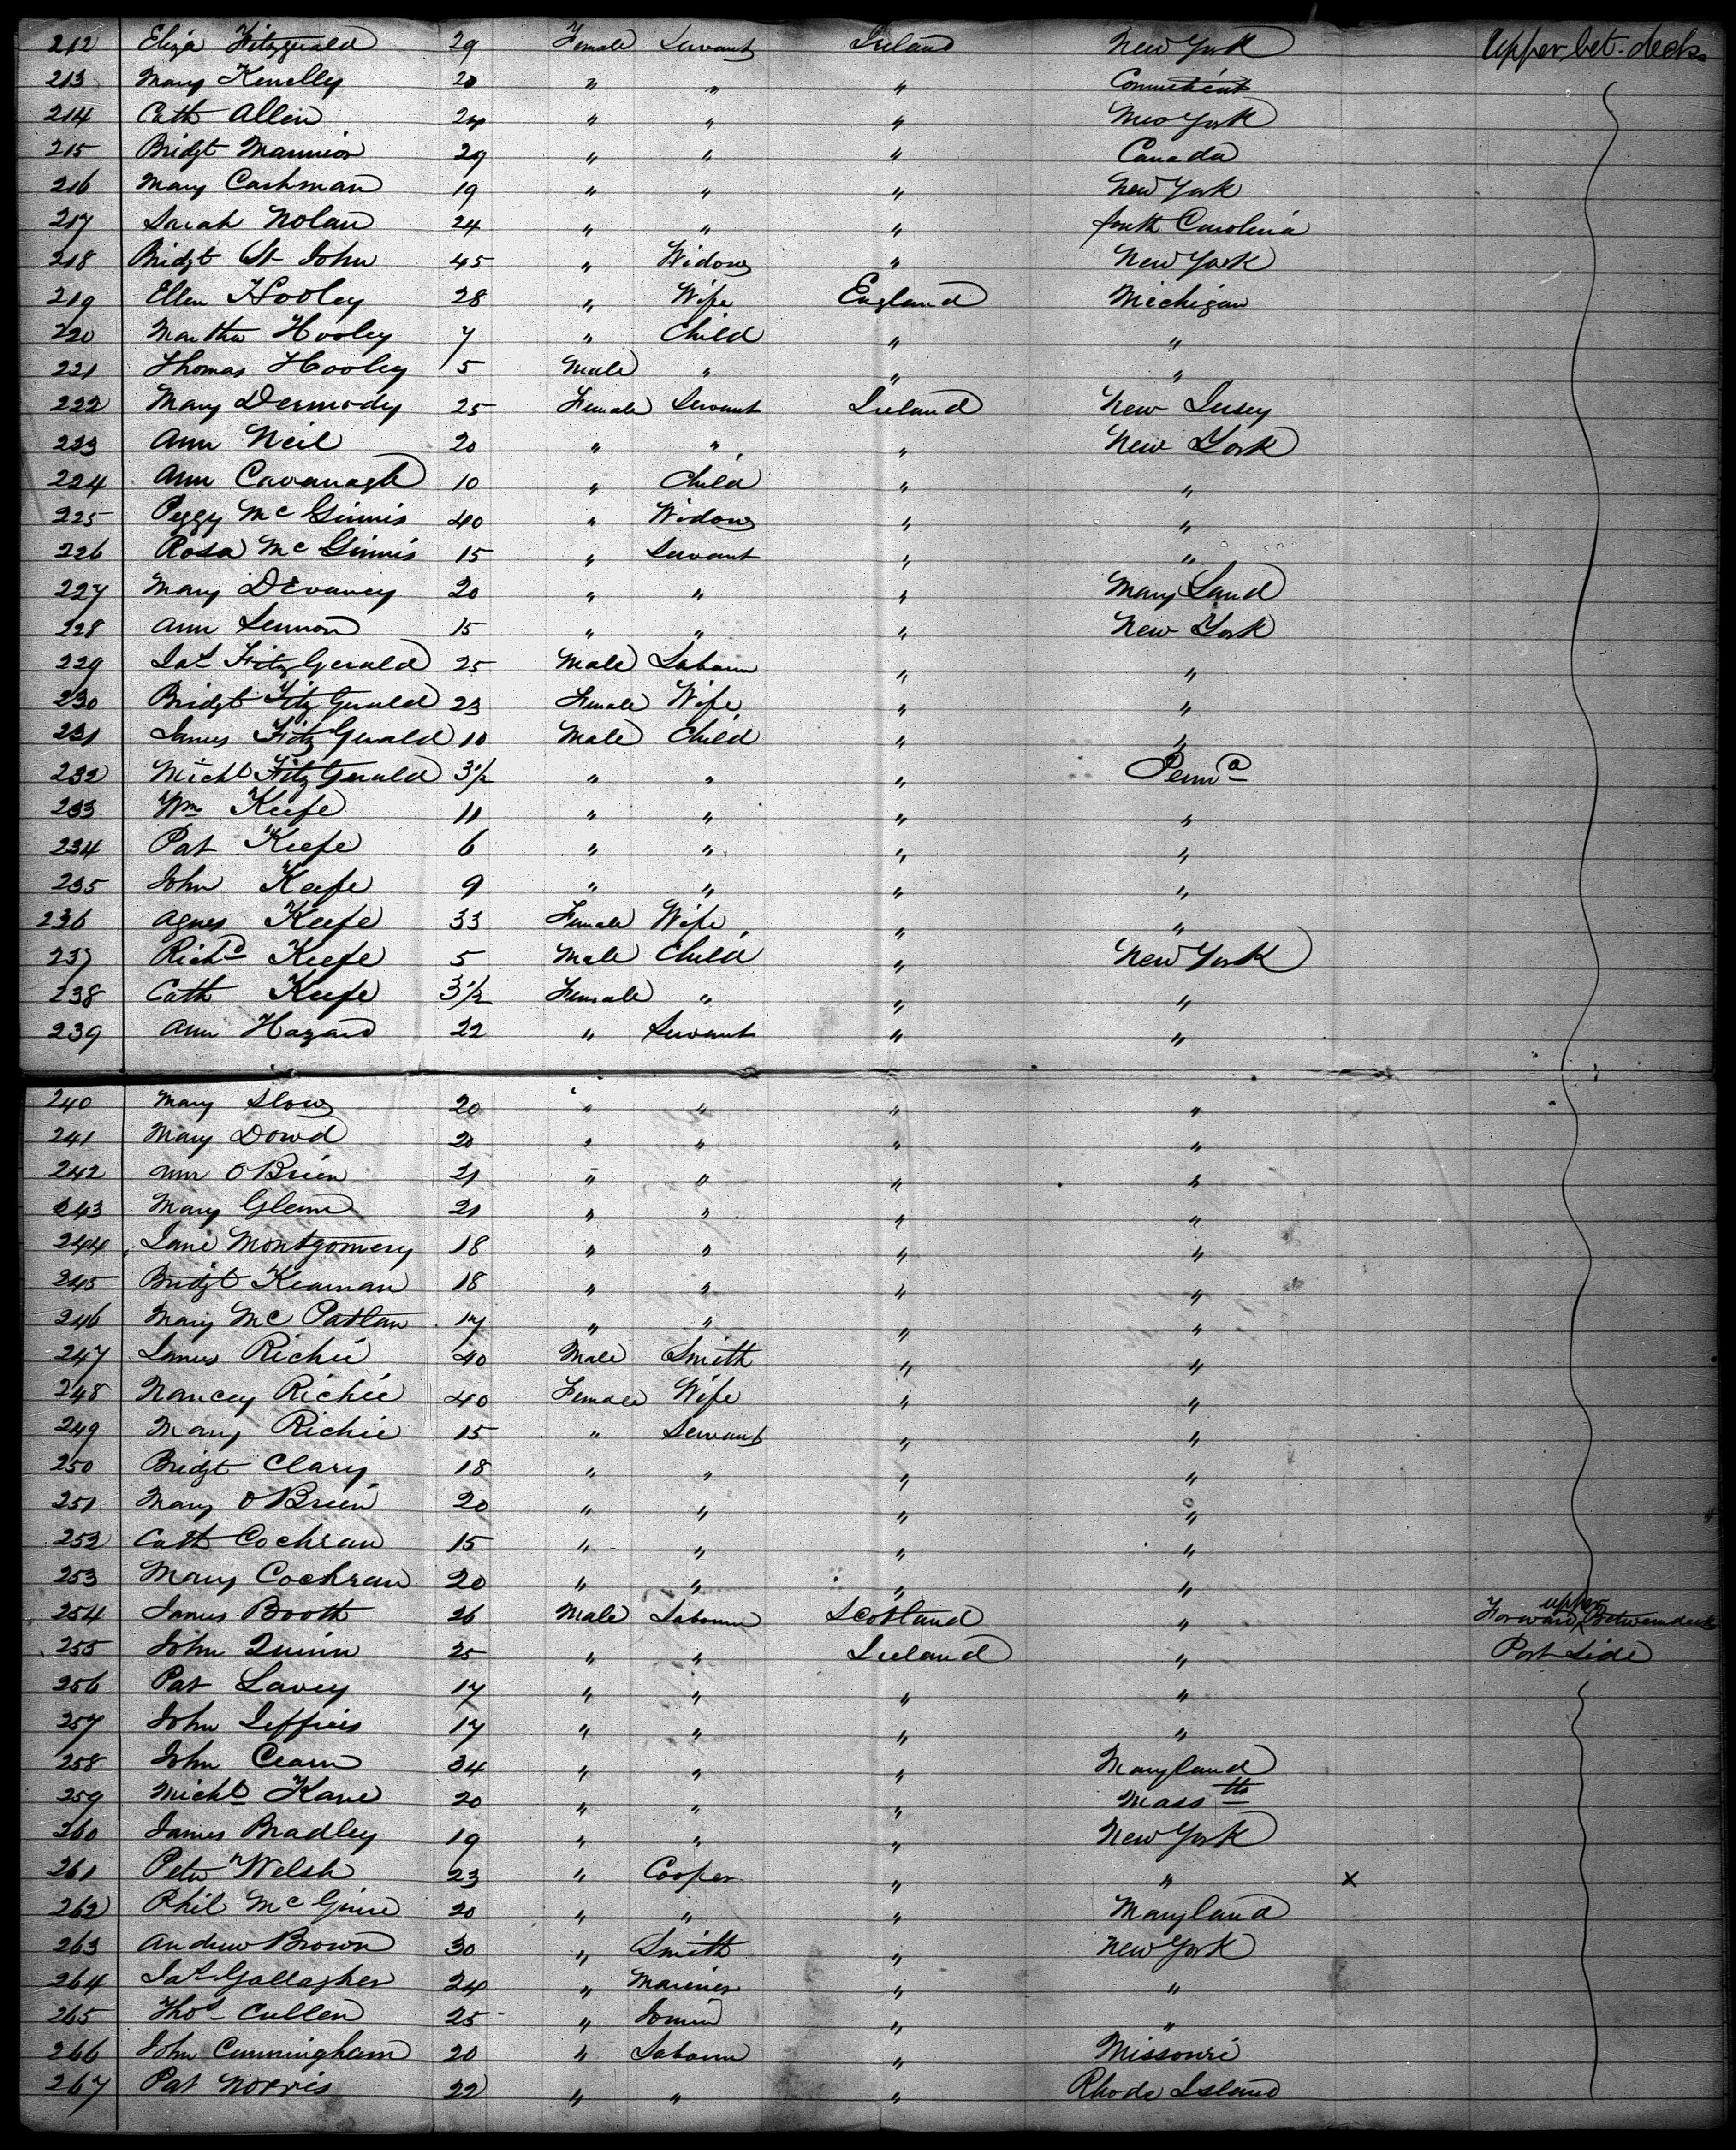 212 Eliza Fitzgerald 29 Female Servant Ireland New York Upper bet. decks
213 Mary Kenelly 20 " " " Connecticut
214 Cath Allen 24 " " " New York
215 Bridgt Mannion 29 " " " Canada
216 Mary Cashman 19 " " " New York
217 Sarah Nolan 24 " " " South Carolina
218 Bridgt St John 45 " Widow " New York
219 Ellen Hooley 28 " Wife England Michigan
220 Martha Hooley 7 " Child " "
221 Thomas Hooley 5 Male " " "
222 Mary Dermody 25 Female Servant Ireland New Jersey
223 Ann Neil 20 " " " New York
224 Ann Cavanagh 10 " Child " "
225 Peggy Mc Ginnis 40 " Widow " "
226 Rosa Mc Ginnis 15 " Servant " "
227 Mary Devaney 20 " " " Mary Land
228 Ann Lennon 15 " " " New York
229 Jas Fitz Gerald 25 Male Labourer " "
230 Bridgt Fitz Gerald 23 Female Wife " "
231 James Fitz Gerald 10 Male Child " "
232 Michl Fitz Gerald 3½ " " " Penna
233 Wm Keefe 11 " " " "
234 Pat Keefe 6 " " " "
235 John Keefe 9 " " " "
236 Agnes Keefe 33 Female Wife " "
237 Richd Keefe 5 Male Child " New York
238 Cath Keefe 3½ Female " " "
239 Ann Hazard 22 " Servant " "
240 Mary Slow 20 " " " "
241 Mary Dowd 20 " " " "
242 Ann O'Brien 21 " " " "
243 Mary Glenn 21 " " " "
244 Jane Montgomery 18 " " " "
245 Bridgt Kearnan 18 " " " "
246 Mary Mc Partlan 17 " " " "
247 James Richie 40 Male Smith " "
248 Nancey Richie 40 Female Wife " "
249 Mary Richie 15 " Servant " "
250 Bridgt Clary 18 " " " "
251 Mary O'Brien 20 " " " "
252 Cath Cochran 15 " " " "
253 Mary Cochran 20 " " " "
254 James Booth 26 Male Labourer Scotland " Forward upper Betweendecks
255 John Quinn 25 " " Ireland " Port Side
256 Pat Lavey 17 " " " "
257 John Jeffries 17 " " " "
258 John Cearn 24 " " " Maryland
259 Michl Kane 20 " " " Mass tts
260 James Bradley 19 " " " New York
261 Peter Welsh 23 " Cooper " " x
262 Phil Mc Guire 20 " " " Maryland
263 Andrew Brown 30 " Smith " New York
264 Jas Gallagher 24 " Mariner " "
265 Thos Cullen 25 " Joiner " "
266 John Cunningham 20 " Labourer " Missouri
267 Pat Norris 22 " " " Rhode Island